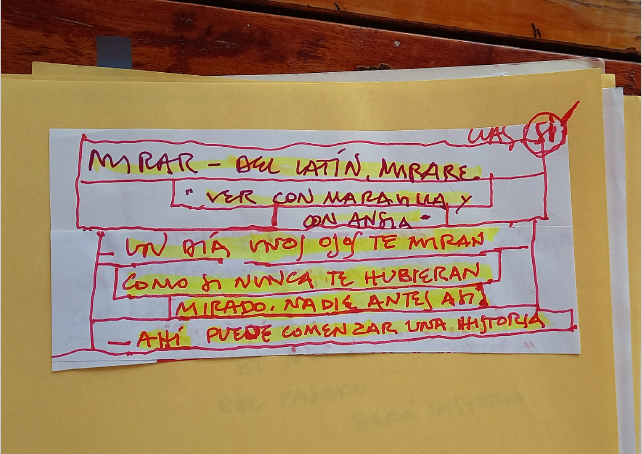 SÍ
MIRAR – DEL LATÍN. MIRARE.
"VER CON MARAVILLA Y
CON ANSIA"
– UN DÍA UNOS OJOS TE MIRAN
COMO SI NUNCA TE HUBIERAN
MIRADO. NADIE ANTES ASÍ
– AHÍ PUEDE COMENZAR UNA HISTORIA